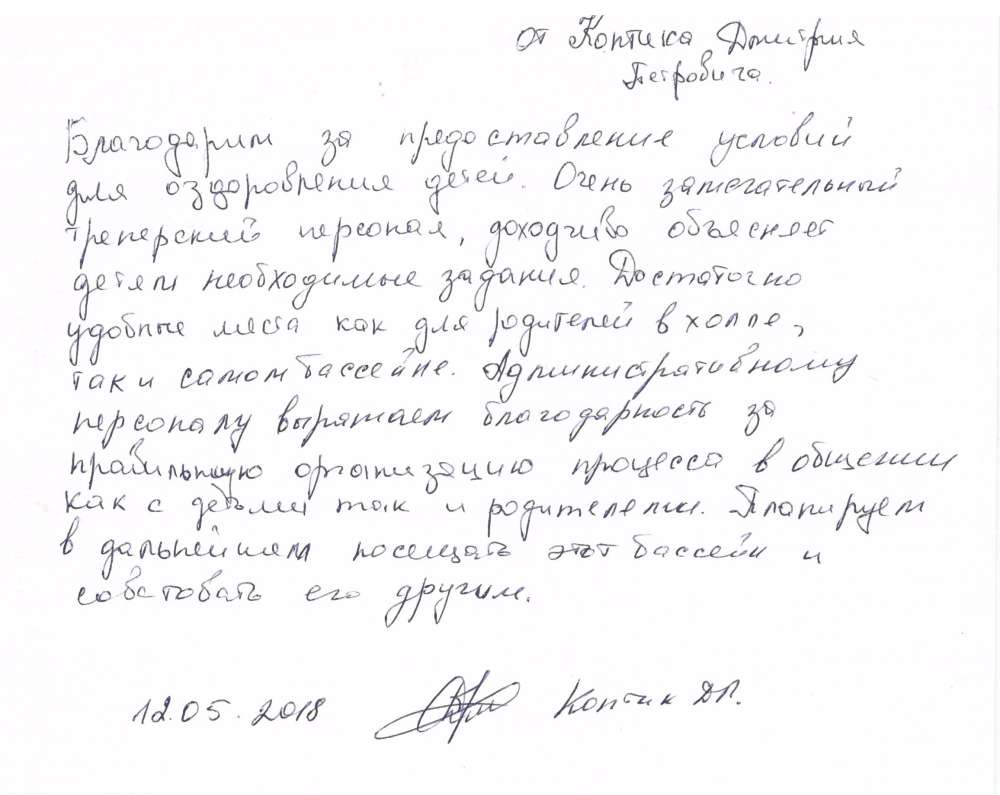 от Коптика Дмитрия
Петровича.
Благодарим за предоставление условий
для оздоровления детей. Очень замечательный
тренерский персонал, доходчиво объясняет
детям необходимые задания. Достаточно
удобные места как для родителей в холле,
так и самом бассейне. Административному
персоналу выражаем благодарность за
правильную организацию процесса в общении
как с детьми так и родителями. Планируем
в дальнейшем посещать этот бассейн и
советовать его другим.
12.05.2018 Коптик Д.П.